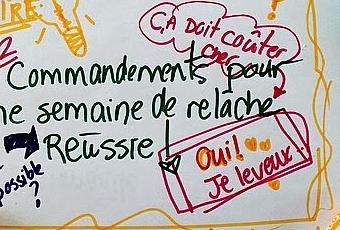 IRE
ÇA DOIT coûter
cher
Commandements pour
ne semaine de relache
Reüssie
possible
?
Oui!
Je le veux
!